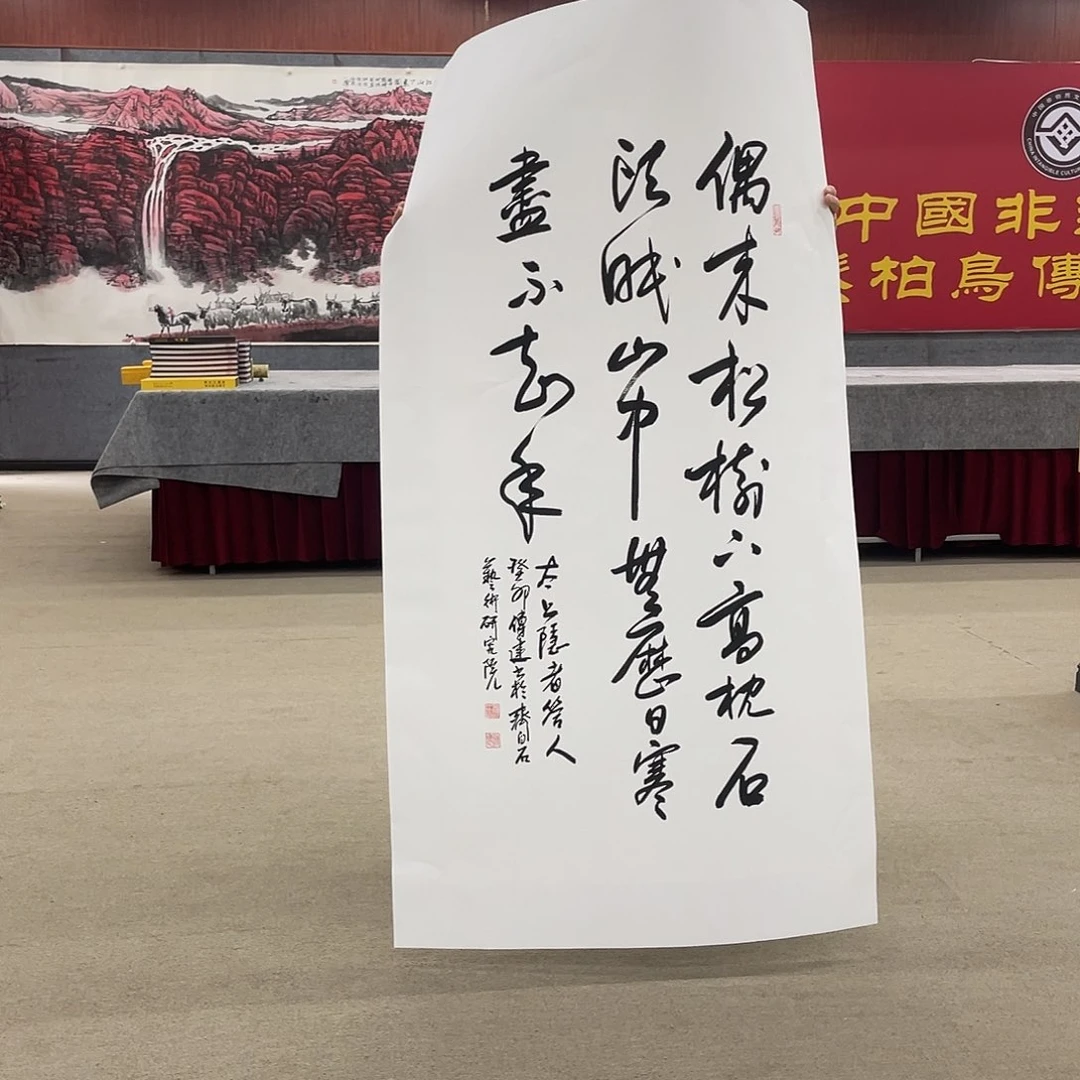 偶来松樹下高枕石
頭眠山中無歷日寒
盡不知年
太上隱者答人
癸卯傳建书於齊白石
藝術研究院
中國非
柏鳥傳
CHINA INTANGIBLE CULTU